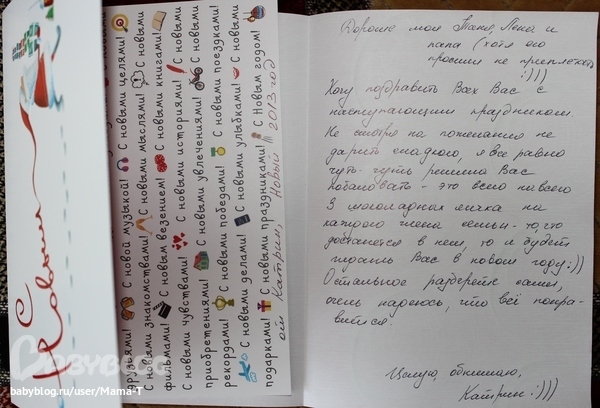 С Новым
друзьями! С новой музыкой! С новыми целями!
С новыми знакомствами! С новыми мыслями! С новыми
фильмами! С новым везением! С новыми книгами!
С новыми чувствами! С новыми историями! С новыми
приобретениями! С новыми увлечениями! С новыми
рекордами! С новыми победами! С новыми поездками!
С новыми делами! С новыми улыбками! С новыми
подарками! С новыми праздниками! С Новым годом!
от Катрин, Новый 2013 год
Дорогие мои Таня, Лена и
папа (хотя его
просили не приплетать
:)))
Хочу поздравить Всех Вас с
наступающим праздником.
Не смотря на пожелания не
дарить сладкого, я все равно
чуть-чуть решила Вас
побаловать - это всего на всего
3 шоколадных яичка на
каждого члена семьи - то, что
достанется в нем, то и будет
Вас в новом году:))
Остальное разберете сами,
очень надеюсь, что всё понра-
вится.
Целую, обнимаю,
Катрин:)))
BABYBLOG
babyblog.ru/user/Mama-T